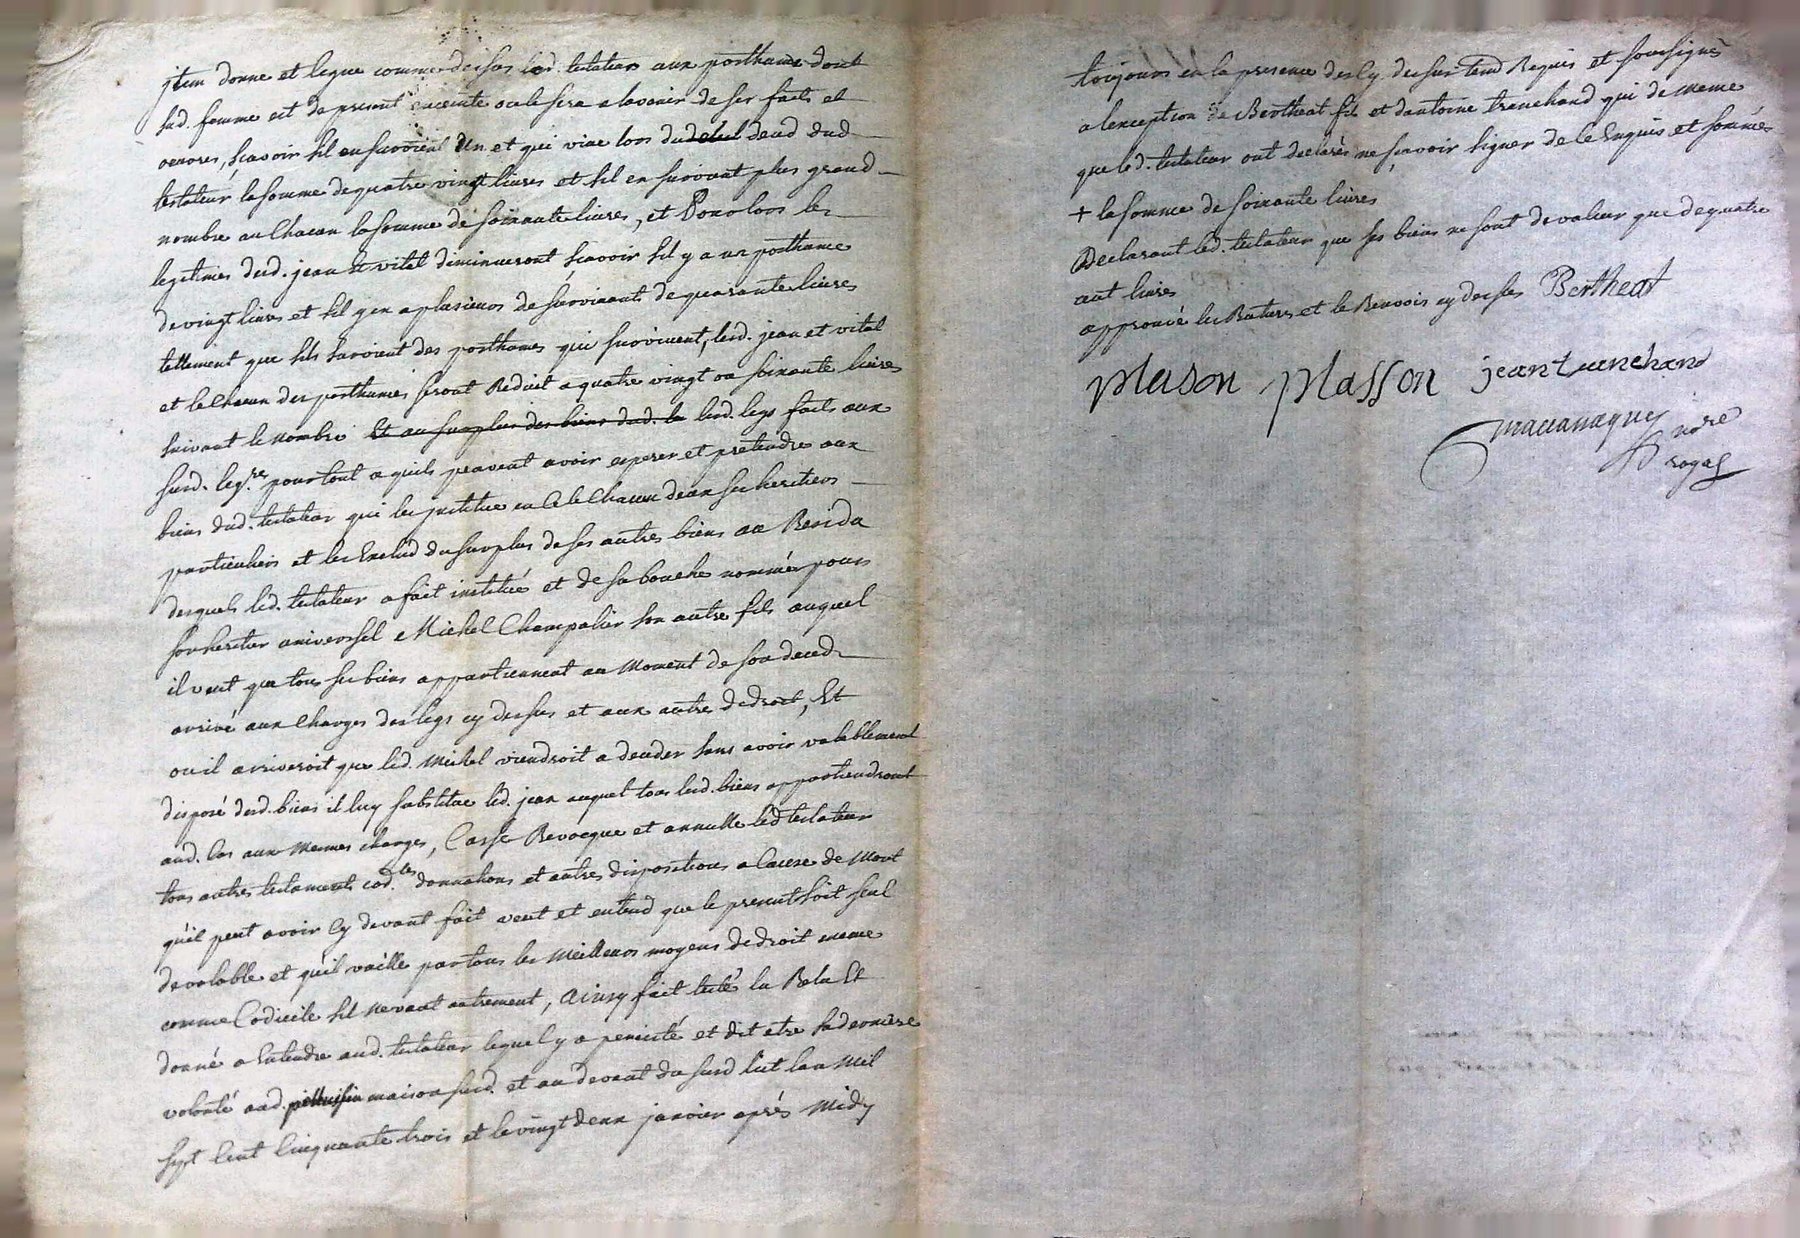 jtem donne et legue comme dessus led. testateur aux posthumes dont
sad. femme est de present enceinte ou le sera a lavenir de ses faits et
oeuvres, scavoir sil en survient un et qui vive lors du deced dud
testateur la somme de quatre vingt livres et sil en survient plus grand
nombre au chacun la somme de soixante livres, et pour lors les
legitimes desd. jean et vital diminueront scavoir sil y a un posthume
de vingt livres et sil y en a plusieurs de survivants de quarante livres
tellement que sils survient des posthumes qui survivent, lesd. jean et vital
et le chacun des posthumes seront reduit a quatre vingt ou soixante livres
suivant le nombre et au surplus des biens dud. lesd. legs faits aux
susd. leg.res pour tout ce quils peuvent avoir esperer et pretendre aux
biens dud. testateur qui les institue en ce le chacun deux ses heritiers
particuliers et les exclud du surplus de ses autres biens au residu
desquels led. testateur a fait institué et de sa bouche nommé pour
son heritier universel Michel Champalier son autre fils auquel
il veut que tous ses biens appartiennent au moment de son deced
arrivé aux charges des legs cy dessus et aux autres de droit, Et
ou il arriveroit que led. Michel viendroit a deceder sans avoir valablement
disposé desd. biens il luy substitue led. jean auquel tous lesd. biens appartiendront
aud. cas aux memes charges, Casse Revocque et annulle led testateur
tous autres testaments cod.les donnations et autres dispositions a cause de mort
quil peut avoir cy devant fait veut et entend que le present soit seul
de valable et quil vaille par tous les meilleurs moyens de droit meme
comme Codicile sil ne vaut autrement, Ainsy fait leu Relu Et
donné a Entendre aud. testateur lequel y a percisté et dit etre sa derniere
volonté aud. maison susd. et au devant du susd lit lan mil
sept cent cinquante trois et le vingt deux janvier après midy
toujours en la presence des cy dessus tem.d Requis et soussignés
a lexception de Bertheat fils et dantoine tranchand qui de meme
que led. testateur ont declarés ne scavoir signer de ce Enquis et sommés
+ la somme de soixante livres
Declarant led. testateur que ses biens ne sont de valeur que de quatre
cent livres
approuvé les Ratures et le Renvois cy dessus Bertheat
plason plasson jean tranchand
no.re
royal